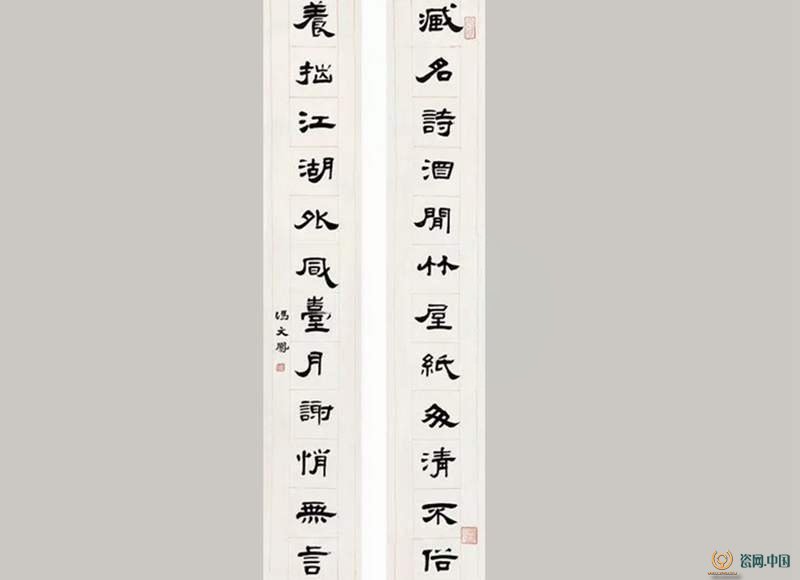 臧名詩酒閒竹屋紙窗清不俗
養拙江湖外風臺月謝悄無言
馮文鳳
瓷网.中国